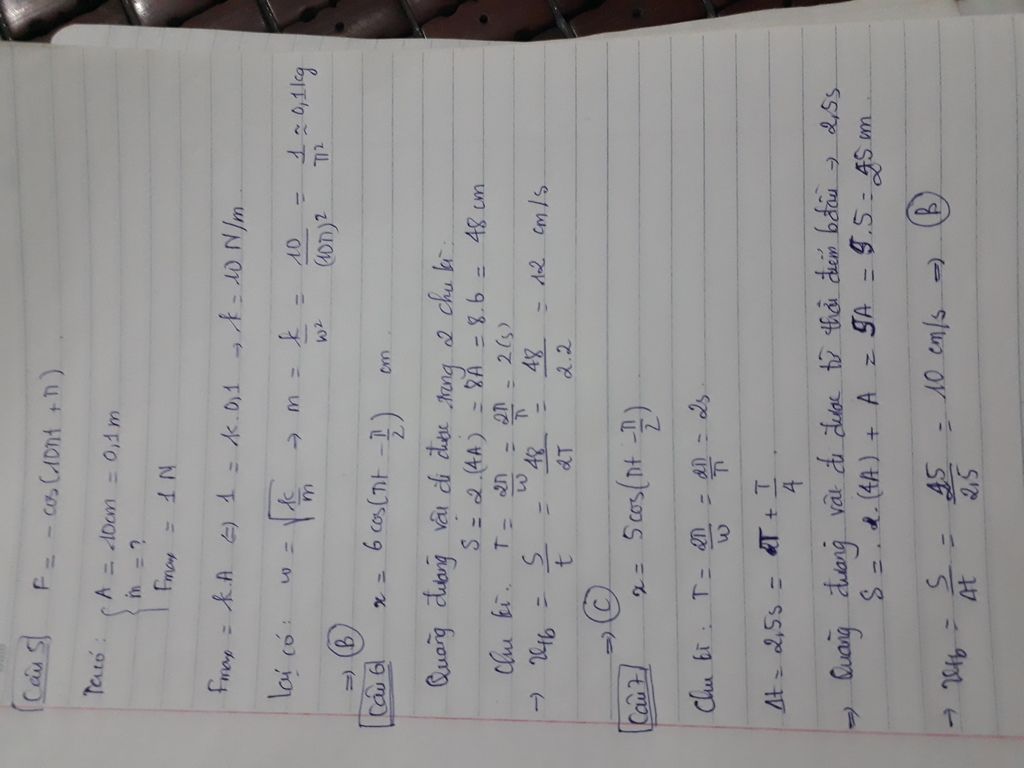 Câu 5 F = - cos(10πt + π)
Ta có: { A = 10cm = 0,1m
m = ?
Fmax = 1N
Fmax = k.A ⇔ 1 = k.0,1 → k = 10 N/m
Lại có: ω = √(k/m) → m = k/ω² = 10/(10π)² = 1/π² ≈ 0,1kg
⇒ B
Câu 6 x = 6cos(πt - π/2) cm
Quãng đường vật đi được trong 2 chu kì:
S = 2.(4A) = 8A = 8.6 = 48 cm
Chu kì: T = 2π/ω = 2π/π = 2(s)
→ vtb = S/t = 48/2T = 48/2.2 = 12 cm/s
⇒ C
Câu 7 x = 5cos(πt - π/2)
Chu kì: T = 2π/ω = 2π/π = 2s
Δt = 2,5s = T + T/4
⇒ Quãng đường vật đi được từ thời điểm b.đầu → 2,5s
S = (4A) + A = 5A = 5.5 = 25 cm
→ vtb = S/Δt = 25/2,5 = 10 cm/s ⇒ B